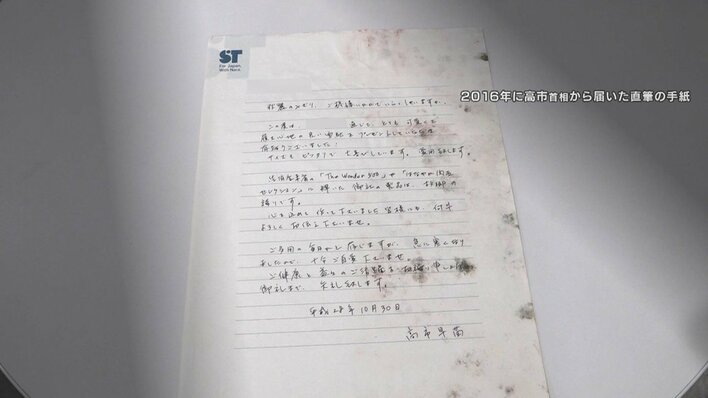 ST
For Japan,
With Nara.
2016年に高市首相から届いた直筆の手紙
ご機嫌いかがでいらっしゃいますか。
この度は、
履き心地の良い
プレゼントしていただき
ありがとうございました!
サイズもピッタリで
愛用致します。
経済産業省の「The Wonder 500」や
セレクション」に輝いた御社の製品は、故郷の
誇りです。
心を込めて作って下さいました皆様にも、何卒
よろしくお伝え下さいませ。
ご多用の毎日かと存じますが、急に寒くなり
ましたので、十分ご自愛下さいませ。
ご健康と益々のご活躍をお祈り申し上げ
御礼まで、失礼致します。
平成28年10月30日
高市早苗